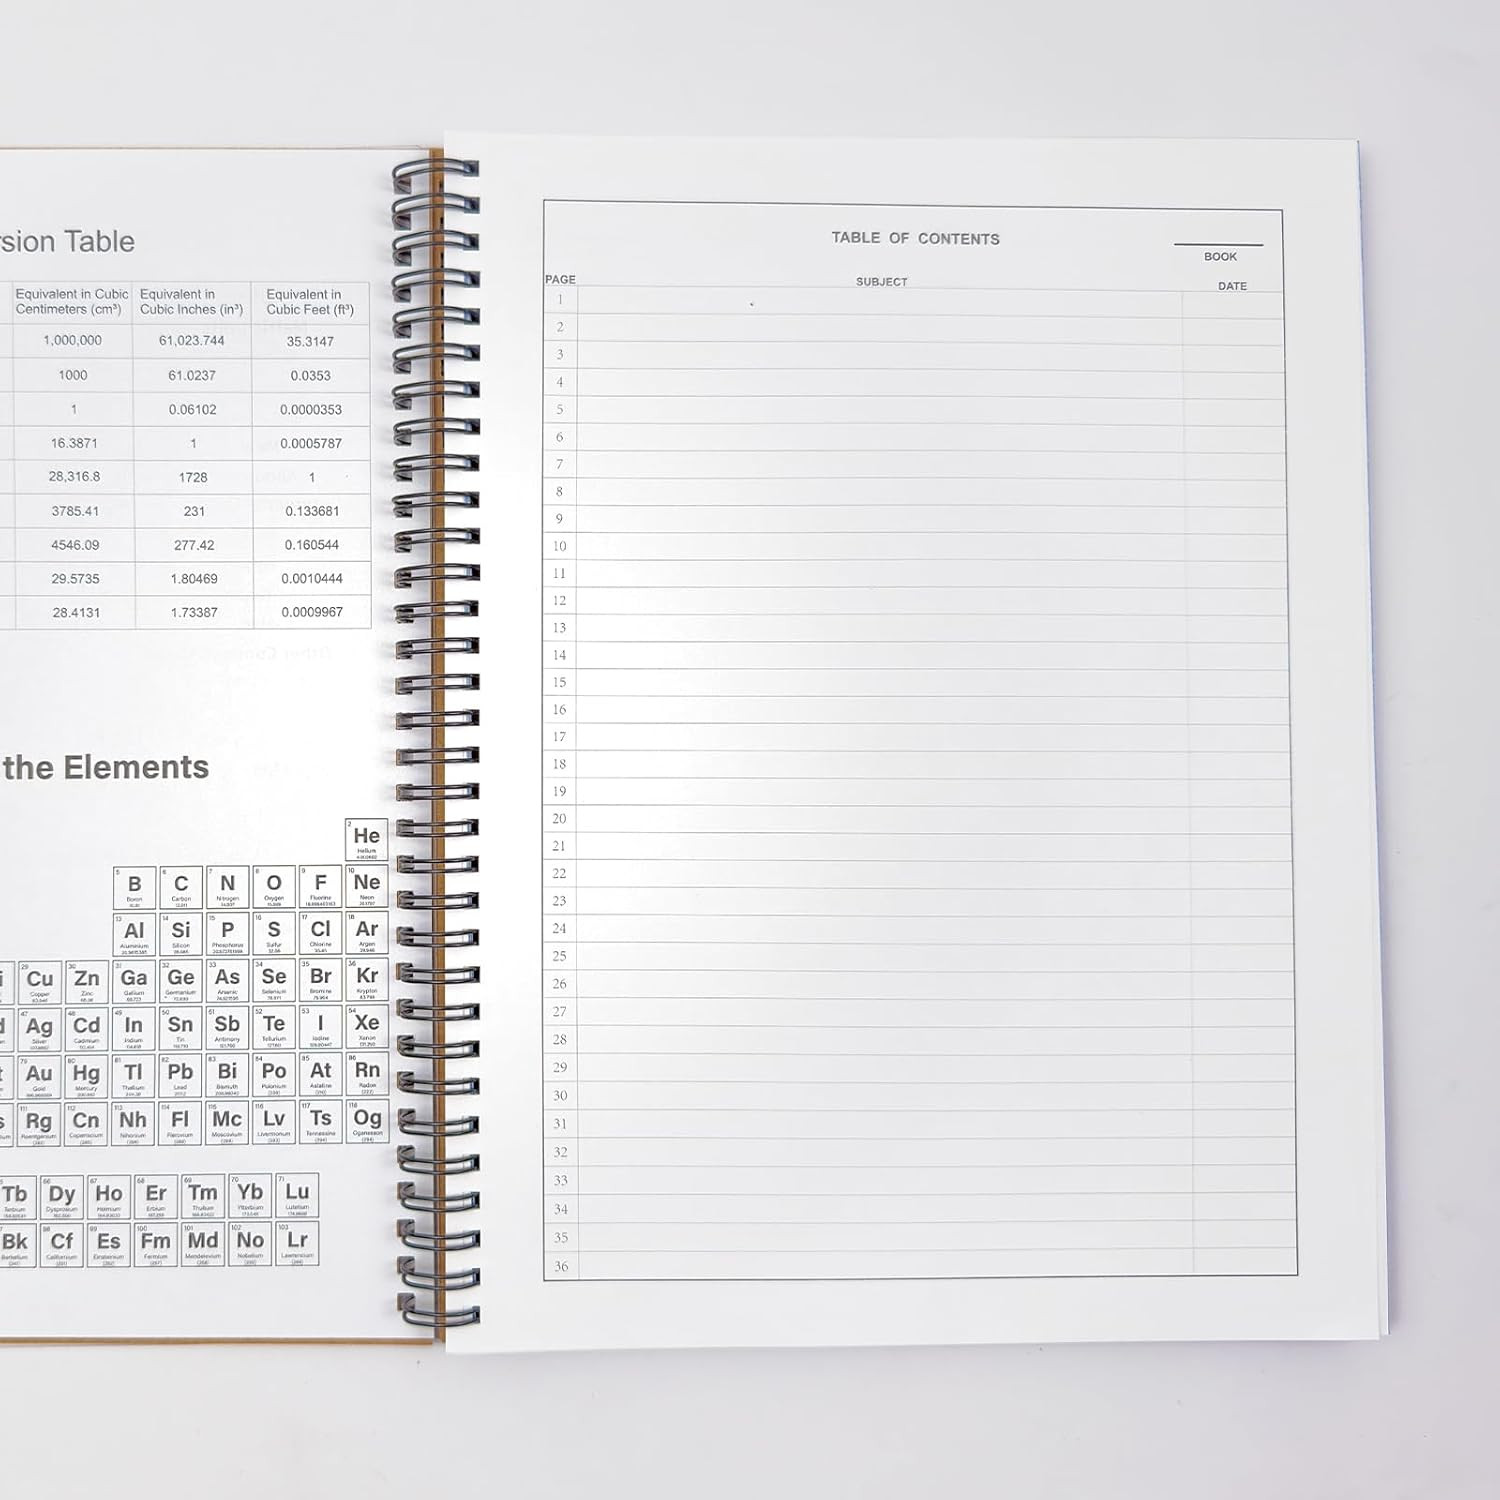 sion Table
Equivalent in Cubic Centimeters (cm³) Equivalent in Cubic Inches (in³) Equivalent in Cubic Feet (ft³)
1,000,000 61,023.744 35.3147
1000 61.0237 0.0353
1 0.06102 0.0000353
16.3871 1 0.0005787
28,316.8 1728 1
3785.41 231 0.133681
4546.09 277.42 0.160544
29.5735 1.80469 0.0010444
28.4131 1.73387 0.0009967
the Elements
2 He Helium
5 B Boron 6 C Carbon 7 N Nitrogen 8 O Oxygen 9 F Fluorine 10 Ne Neon
13 Al Aluminium 14 Si Silicon 15 P Phosphorus 16 S Sulfur 17 Cl Chlorine 18 Ar Argon
29 Cu Copper 30 Zn Zinc 31 Ga Gallium 32 Ge Germanium 33 As Arsenic 34 Se Selenium 35 Br Bromine 36 Kr Krypton
47 Ag Silver 48 Cd Cadmium 49 In Indium 50 Sn Tin 51 Sb Antimony 52 Te Tellurium 53 I Iodine 54 Xe Xenon
79 Au Gold 80 Hg Mercury 81 Tl Thallium 82 Pb Lead 83 Bi Bismuth 84 Po Polonium 85 At Astatine 86 Rn Radon
111 Rg Roentgenium 112 Cn Copernicium 113 Nh Nihonium 114 Fl Flerovium 115 Mc Moscovium 116 Lv Livermorium 117 Ts Tennessine 118 Og Oganesson
Tb Terbium 66 Dy Dysprosium 67 Ho Holmium 68 Er Erbium 69 Tm Thulium 70 Yb Ytterbium 71 Lu Lutetium
Bk Berkelium 98 Cf Californium 99 Es Einsteinium 100 Fm Fermium 101 Md Mendelevium 102 No Nobelium 103 Lr Lawrencium
TABLE OF CONTENTS
BOOK
PAGE SUBJECT DATE
1
2
3
4
5
6
7
8
9
10
11
12
13
14
15
16
17
18
19
20
21
22
23
24
25
26
27
28
29
30
31
32
33
34
35
36